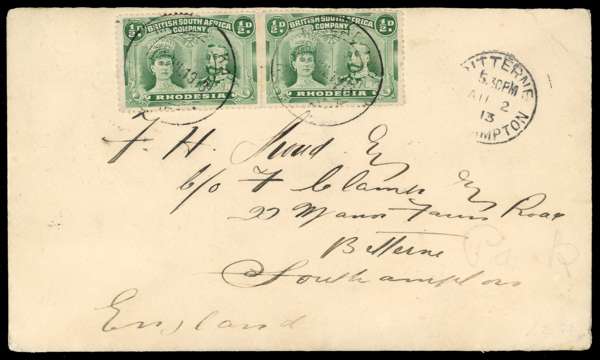 ½d. BRITISH SOUTH AFRICA COMPANY ½d.
RHODESIA
½d. BRITISH SOUTH AFRICA COMPANY ½d.
RHODESIA
BITTERNE
5.30PM
AU 2
13
MPTON
F. H. Esq
c/o F Clames Esq
22 Manor Farm Road
Bitterne
Southampton
England